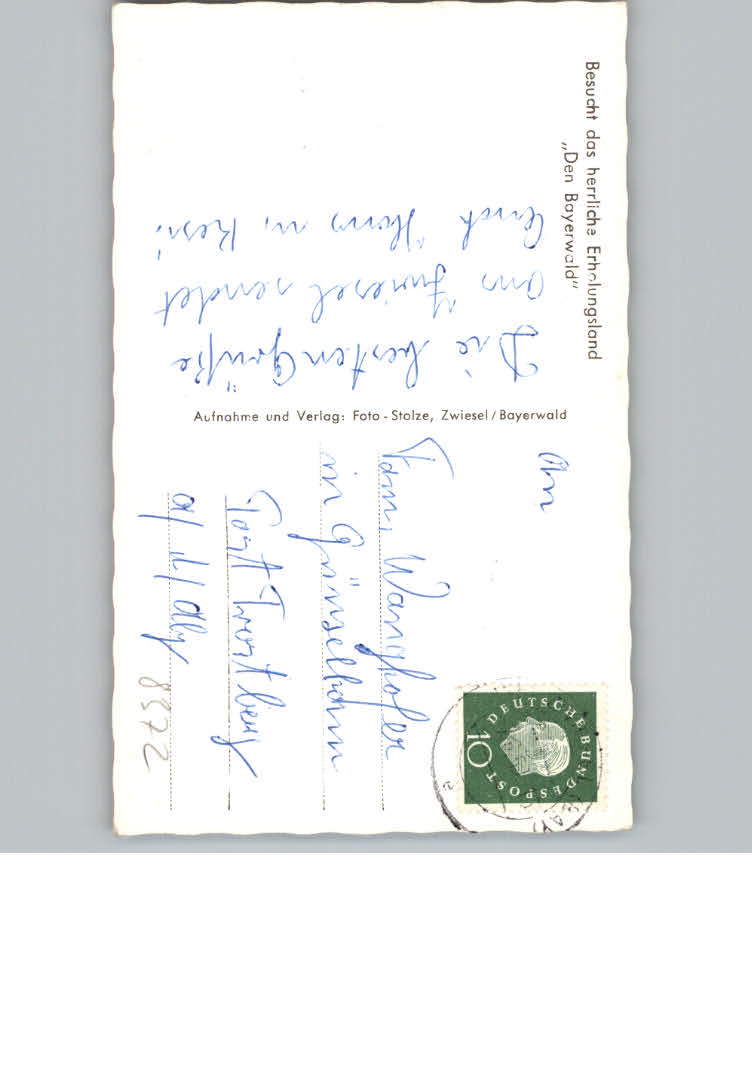 Besucht das herrliche Erholungsland
„Den Bayerwald"
Die besten Grüße
aus Zwiesel sendet
Euch Hans u, Resi
Aufnahme und Verlag: Foto-Stolze, Zwiesel/Bayerwald
An
Fam, Wanghofer
in Günselham
Post Trostberg
a/d/Alz
8372
DEUTSCHE BUNDESPOST
10